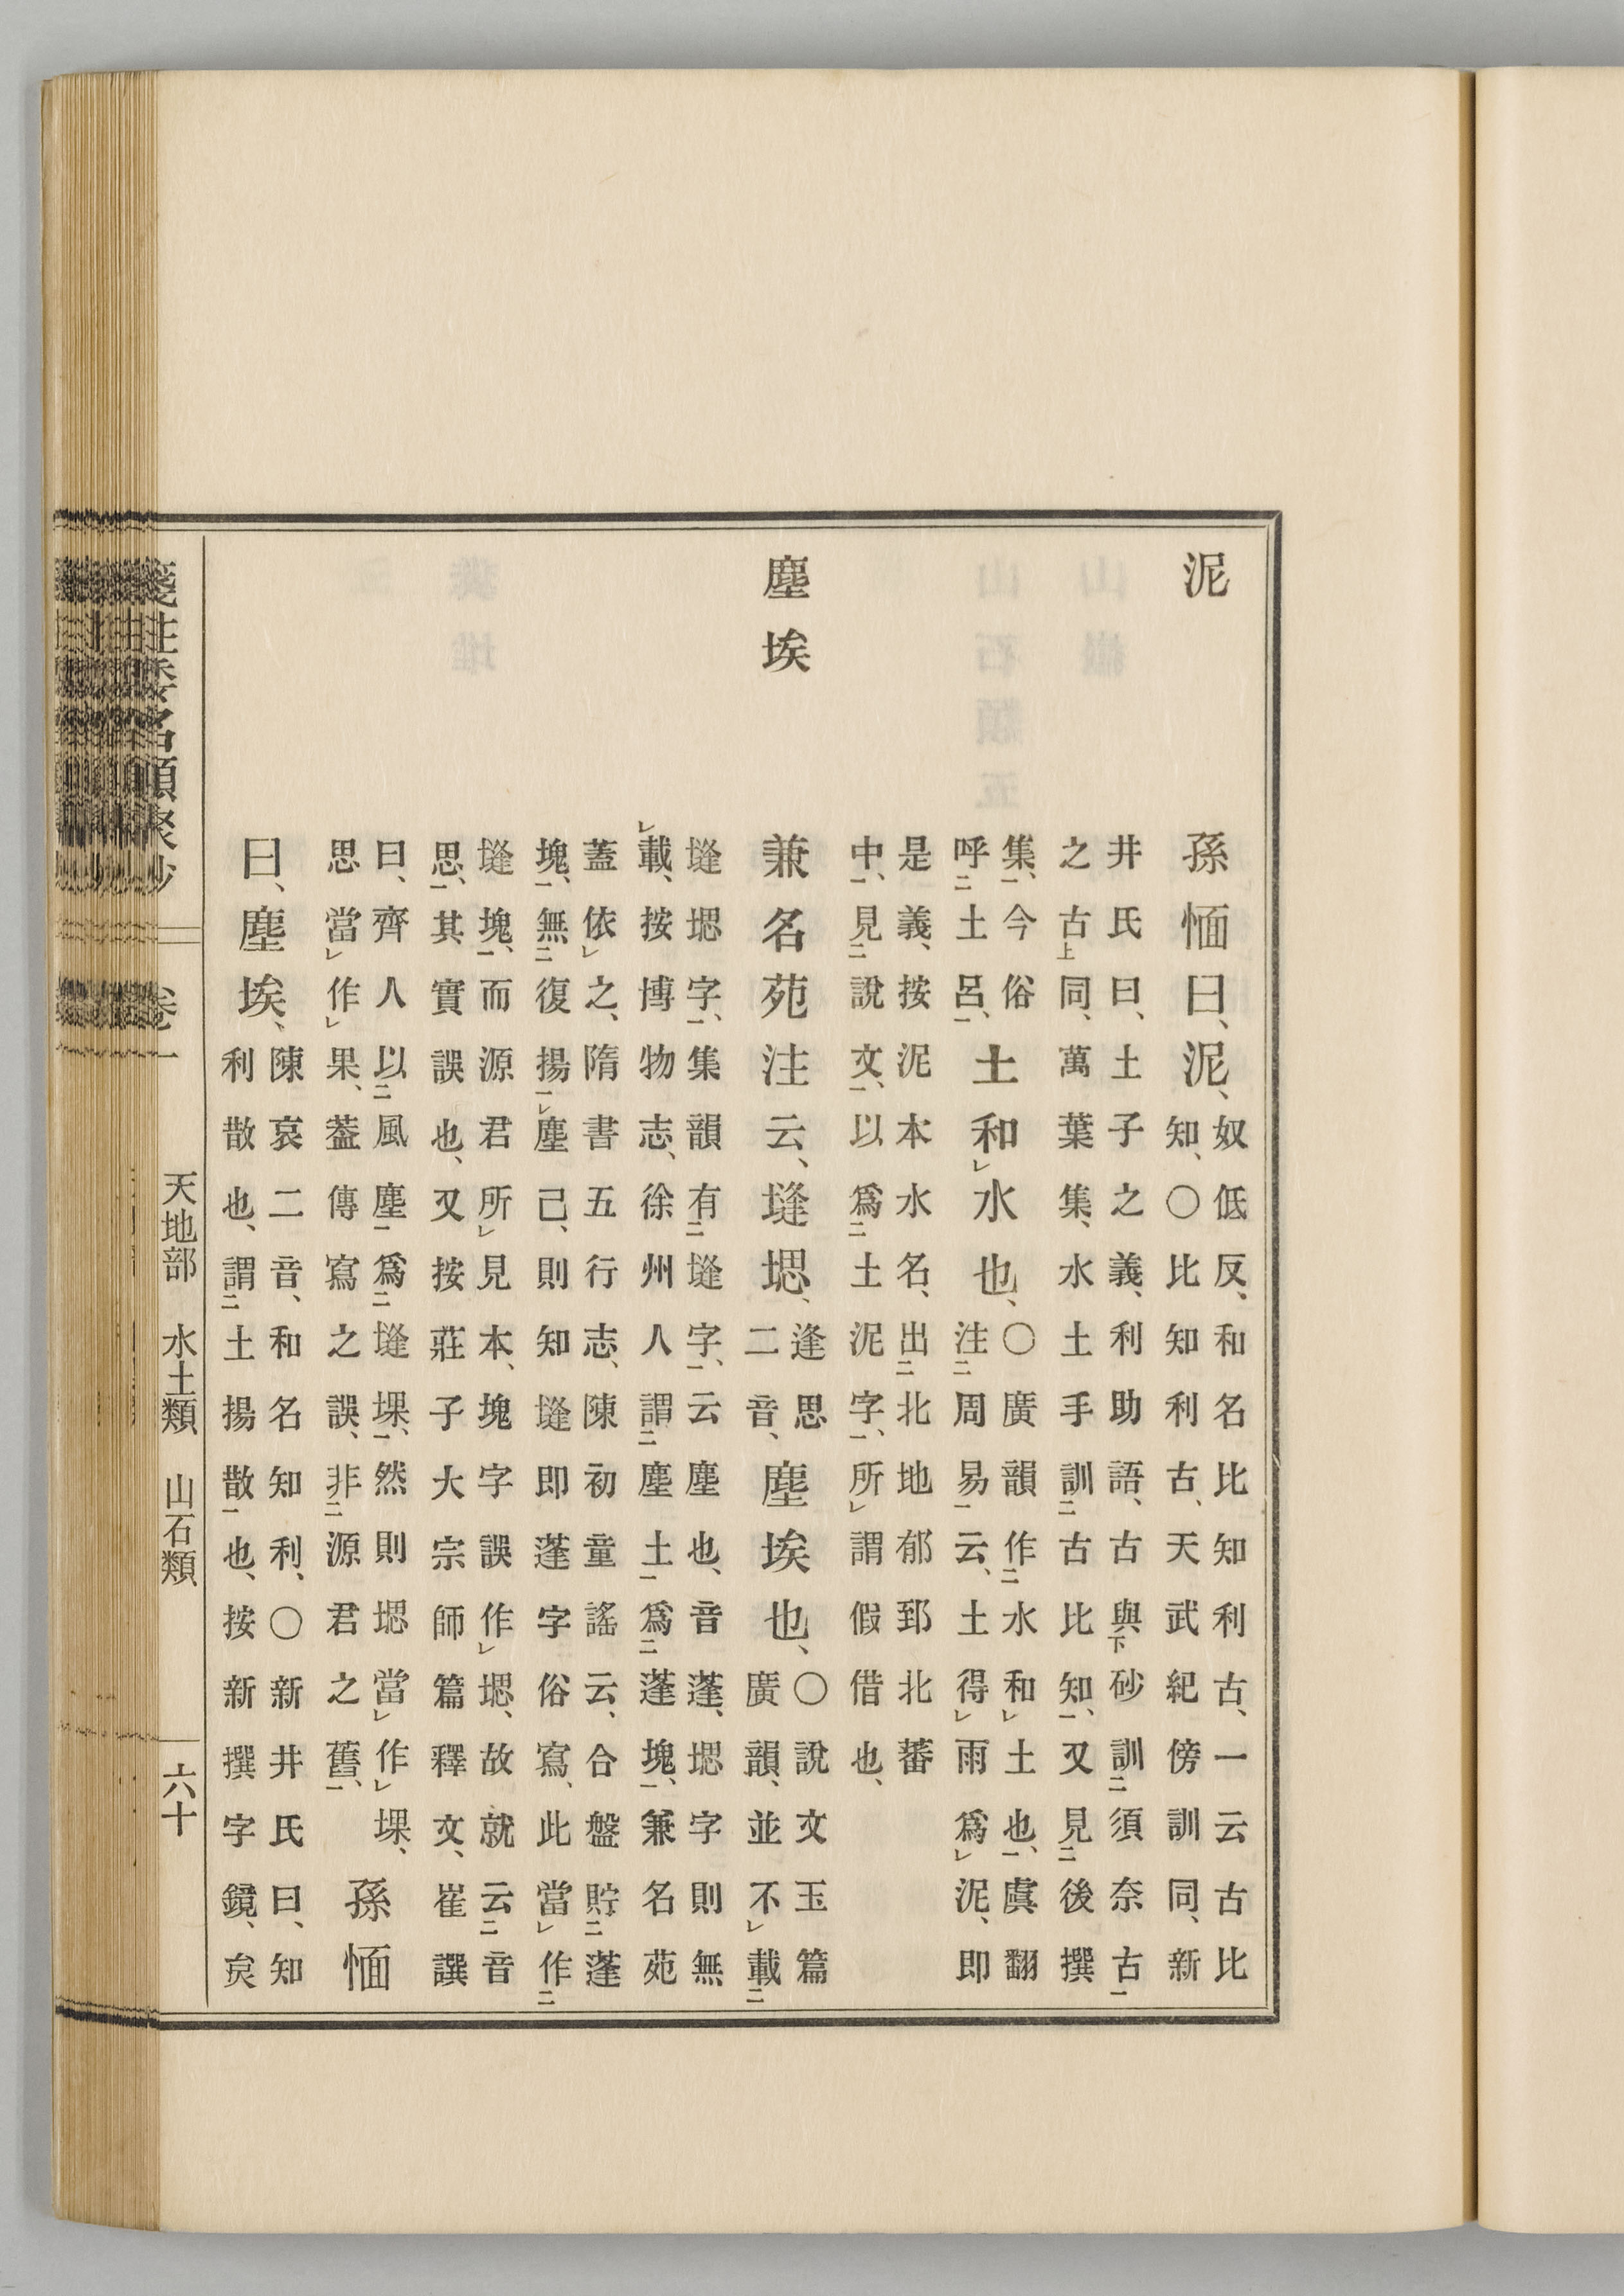 泥
孫愐曰、泥、
奴低反、和名比知利古、一云古比
知、〇比知利古、天武紀傍訓同、新
井氏曰、土子之義、利助語、古與砂訓須奈古
之古同、萬葉集、水土手訓古比知、又見後撰
集、今俗
呼土呂、
土和水也、
〇廣韻作水和土也、虞翻
注周易云、土得雨爲泥、即
是義、按泥本水名、出北地郁郅北蕃
中、見說文、以爲土泥字、所謂假借也、
塵埃
兼名苑注云、塳、
逢思
二音、
塵埃也、
〇說文玉篇
廣韻、並不載
塳字、集韻有塳字、云塵也、音蓬、字則無
載、按博物志、徐州人謂塵土爲蓬塊、兼名苑
蓋依之、隋書五行志、陳初童謠云、合盤貯蓬
塊、無復揚塵己、則知塳即蓬字俗寫、此當作
塳塊、而源君所見本、塊字誤作、故就云音
思、其實誤也、又按莊子大宗師篇釋文、崔譔
曰、齊人以風塵爲塳堁、然則當作堁、
思當作果、葢傳寫之誤、非源君之舊、
孫愐
曰、塵埃、
陳哀二音、和名知利、〇新井氏曰、知
利散也、謂土揚散也、按新撰字鏡、
箋注倭名類聚抄 卷一 天地部 水土類 山石類 六十